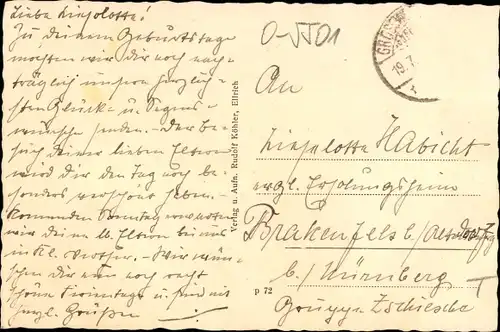 Liebe Lieselotte!
Zu deinem Geburtstage
möchten wir dir noch nach-
träglich unsere herzlich-
sten Glück- u. Segens-
wünsche senden. Der Be-
such deiner lieben Eltern
wird dir den Tag noch be-
sonders verschönt haben.
Kommenden Sonntag erwarten
wir deine lb. Eltern bei uns
in Kl. Wir wün-
schen dir nun noch recht
schöne Ferientage u. sind mit
herzl. Grüßen
Verlag u. Aufn. Rudolf Köhler, Ellrich
O-5501
19.7.
An
Lieselotte Habicht
evgl. Erholungsheim
Brakenfels b/
b/Nürnberg
Gruppe Zschiesche
p 72